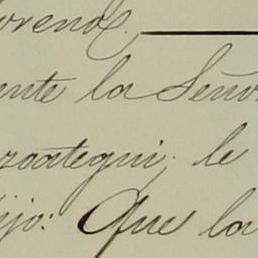 orend.
ente la Seño
zoategui; le
ijo: Que la